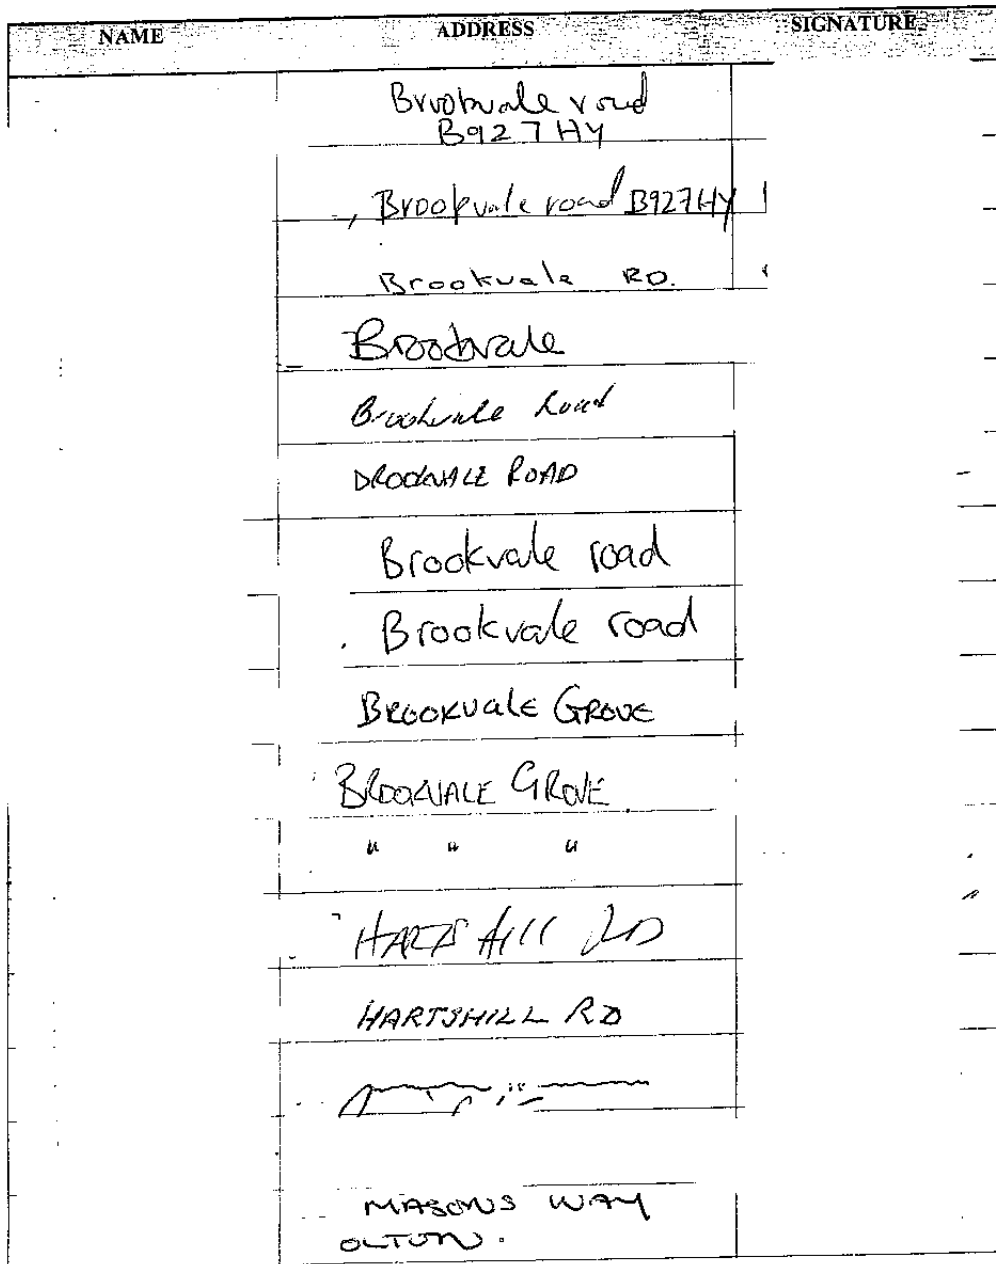 NAME ADDRESS SIGNATURE
Brookvale road
B92 7HY
, Brookvale road B927HY
Brookvale RD.
Brookvale
Brookvale Road
BROOKVALE ROAD
Brookvale road
Brookvale road
BROOKVALE GROVE
BROOKVALE GROVE
" " "
HARTSHILL RD
HARTSHILL RD
MASONS WAY
OLTON.